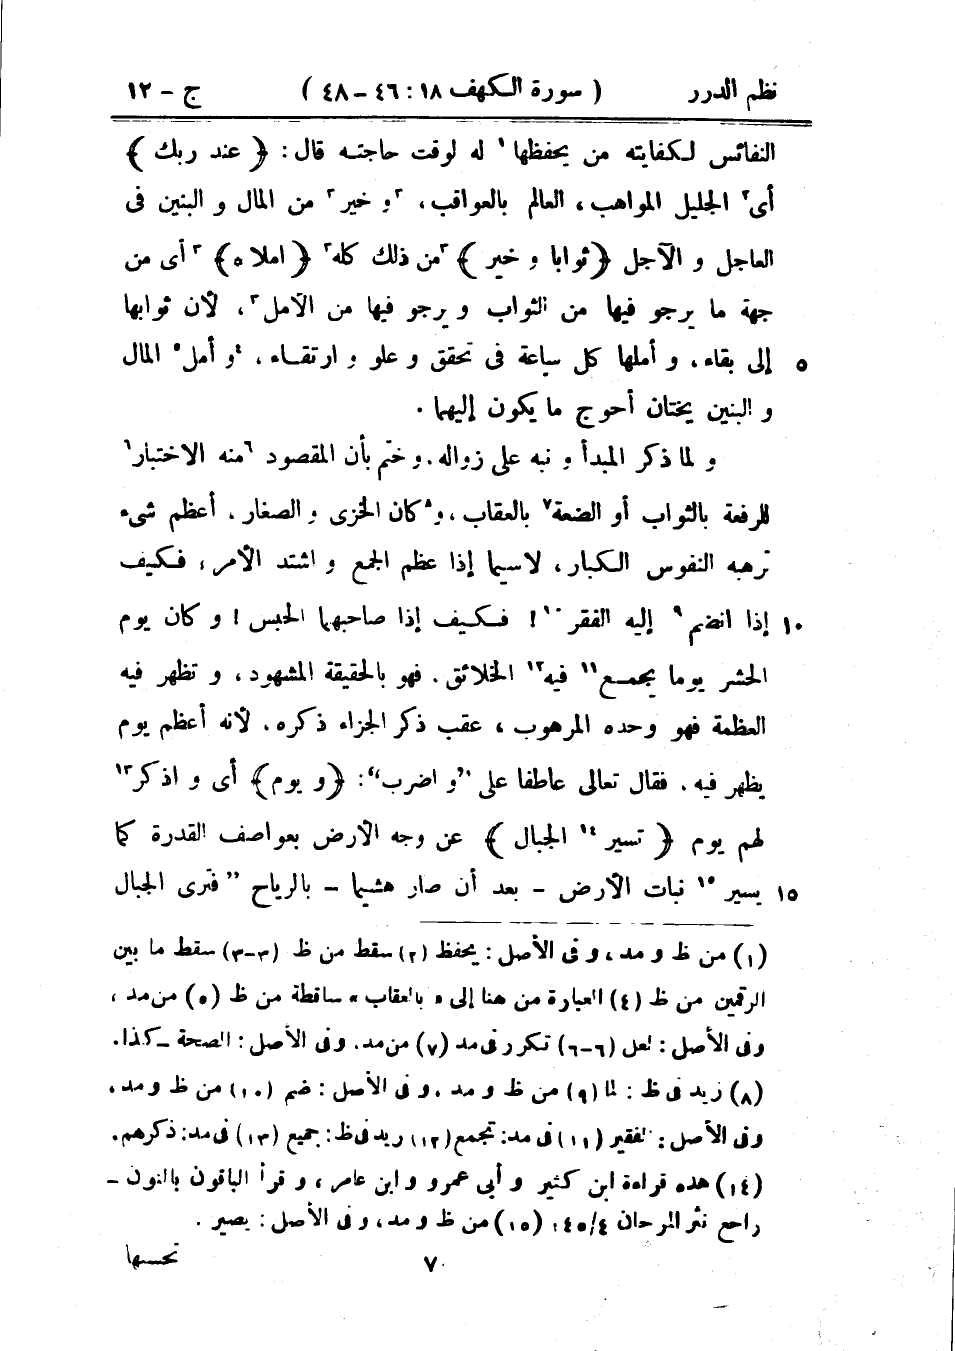 نظم الدرر ( سورة الكهف ١٨ : ٤٦ – ٤٨ ) ج – ١٢
النفائس لكفايته من يحفظها١ له لوقت حاجته قال : ﴿ عند ربك ﴾
أى٢ الجليل المواهب ، العالم بالعواقب ، ٣و خير٣ من المال و البنين فى
العاجل و الآجل ﴿ ثوابا و خير ﴾ ٣من ذلك كله٣ ﴿ املا ه ﴾ ٣ أى من
جهة ما يرجو فيها من الثواب و يرجو فيها من الأمل٣ ، لأن ثوابها
٥ إلى بقاء ، و أملها كل ساعة فى تحقق و علو و ارتقاء ، ٤و أمل٥ المال
و البنين يختان أحوج ما يكون إليهما .
و لما ذكر المبدأ و نبه على زواله ، و ختم بأن المقصود ٦منه الاختبار٦
للرفعة بالثواب أو الضعة٧ بالعقاب ، و٨كان الخزى و الصغار ، أعظم شىء
ترهبه النفوس الكبار ، لاسيما إذا عظم الجمع و اشتد الأمر ، فكيف
١٠ إذا انضم٩ إليه الفقر١٠ ! فكيف إذا صاحبهما الحبس ! و كان يوم
الحشر يوما يجمع١١ فيه١٢ الخلائق ، فهو بالحقيقة المشهود ، و تظهر فيه
العظمة فهو وحده المرهوب ، عقب ذكر الجزاء ذكره ، لأنه أعظم يوم
يظهر فيه ، فقال تعالى عاطفا على ”و اضرب“ : ﴿ و يوم ﴾ أى و اذكر١٣
لهم يوم ﴿ تسير١٤ الجبال ﴾ عن وجه الأرض بعواصف القدرة كما
١٥ يسير١٥ نبات الأرض – بعد أن صار هشيما – بالرياح ” فترى الجبال
(١) من ظ و مد ، و فى الأصل : يحفظ (٢) سقط من ظ (٣-٣) سقط ما بين
الرقمين من ظ (٤) العبارة من هنا إلى « بالعقاب » ساقطة من ظ (٥) من مد ،
وفى الأصل : لعل (٦-٦) تكرر فى مد (٧) من مد ، وفى الأصل : الصحة – كذا .
(٨) زيد فى ظ : لما (٩) من ظ و مد ، و فى الأصل : ضم (١٠) من ظ و مد ،
وفى الأصل : الفقير (١١) فى مد : تجمع (١٢) زيد فى ظ : جميع (١٣) فى مد : ذكرهم .
(١٤) هذه قراءة ابن كثير و أبى عمرو و ابن عامر ، و قرأ الباقون بالنون –
راجع نثر المرجان ٤/٤٥ ، (١٥) من ظ و مد ، و فى الأصل : يصير .
٧ تحسبها